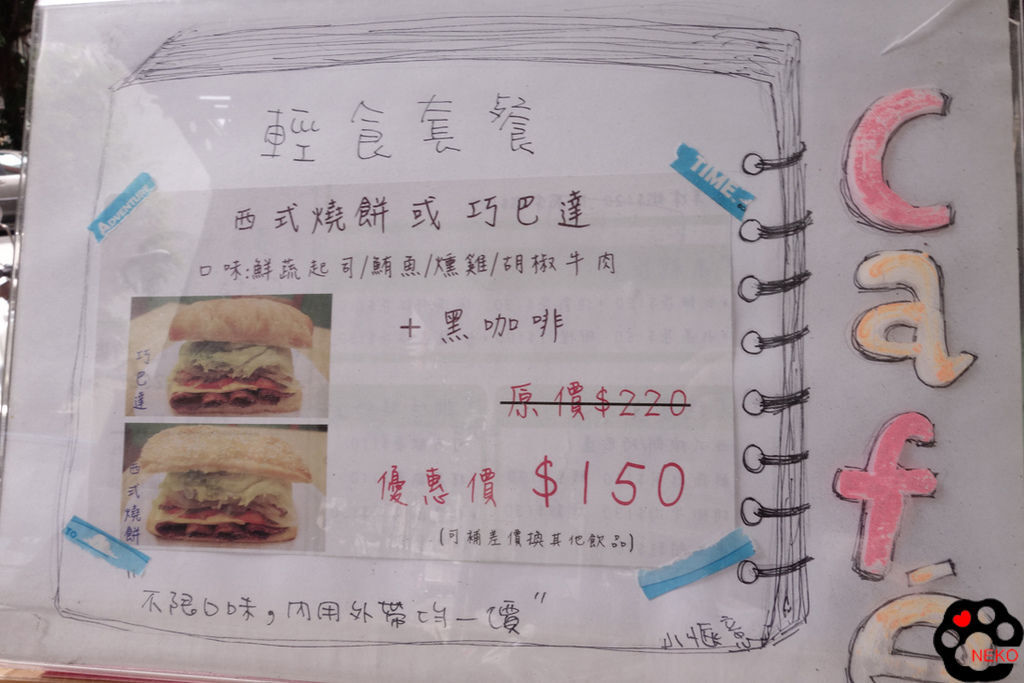 輕食套餐
ADVENTURE
TIME
西式燒餅或巧巴達
口味:鮮蔬起司/鮪魚/燻雞/胡椒牛肉
+黑咖啡
巧巴達
原價$220
優惠價 $150
西式燒餅
(可補差價換其他飲品)
TO
不限口味,內用外帶均一價"
小愜意
Café
NEKO